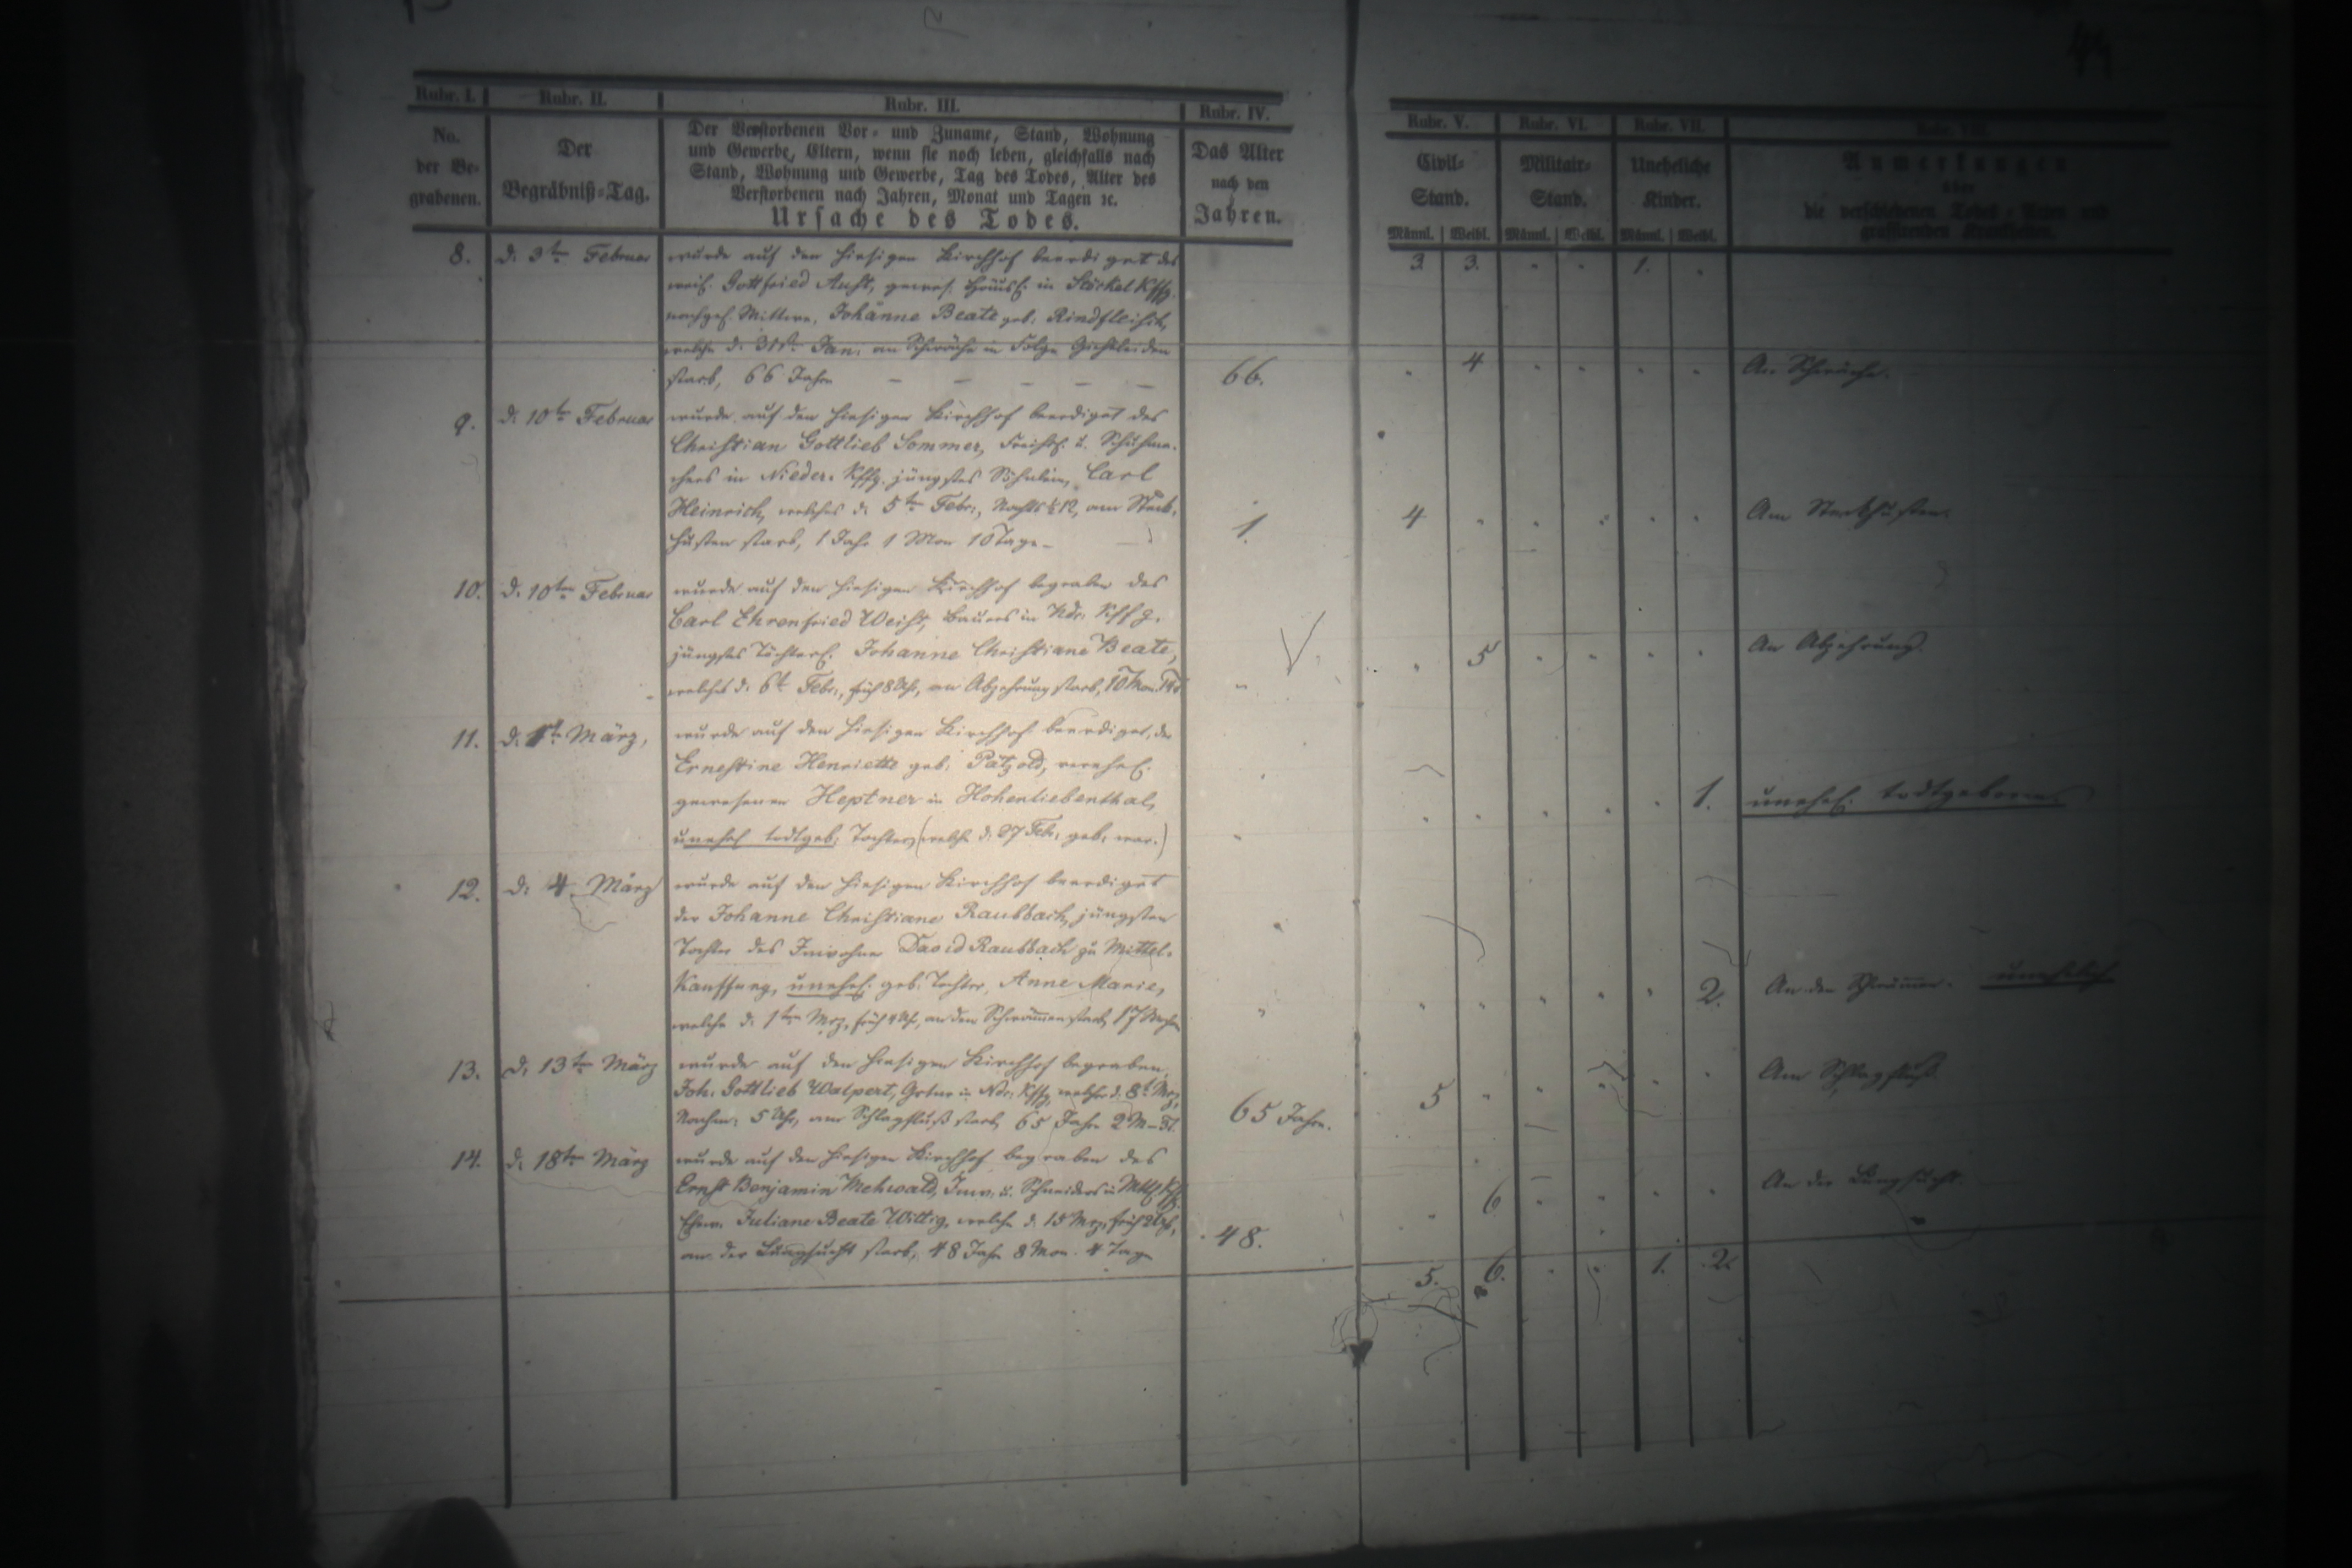 Rubr. I.
Rubr. II.
Rubr. III.
Rubr. IV.
Rubr. V.
Rubr. VI.
Rubr. VII.
No.
der Be-
grabenen.
Der
Begräbniß-Tag.
Der Verstorbenen Vor- und Zuname, Stand, Wohnung
und Gewerbe, Eltern, wenn sie noch leben, gleichfalls nach
Stand, Wohnung und Gewerbe, Tag des Todes, Alter des
Verstorbenen nach Jahren, Monat und Tagen ꝛc.
Ursache des Todes.
Das Alter
nach den
Jahren.
Civil-
Stand.
Militair-
Stand.
Uneheliche
Kinder.
Anmerkungen
über
die verschiedenen Todes-Arten und
grassirenden Krankheiten.
Männl. Weibl. Männl. Weibl. Männl. Weibl.
3. 3. " " 1. "
8. d. 3ten Februar wurde auf den hiesigen Kirchhof beerdiget des
weil. Gottfried gewes. Häusl. in Stöckel Kffg.
nachgel. Wittwe, Johanne Beate geb. Rindfleisch,
welche d. 31st. Jan. an Schwäche in Folge Gichtleiden
starb, 66 Jahre 66. " 4 " " " " An Schwäche.
9. d. 10t Februar wurde auf den hiesigen Kirchhof beerdiget des
Christian Gottlieb Sommer, Freihsl. u. Schuhma-
chers in Nieder-Kffg. jüngstes Söhnlein, Carl
Heinrich, welches d. 5ten Febr., Nachts 12, am Stick-
husten starb, 1 Jahr 1 Mon 10 Tage 1. 4 " " " " " Am Stickhusten.
10. d. 10ten Februar wurde auf den hiesigen Kirchhof begraben des
Carl Ehrenfried Weist, Bauers in Ndr. Kffg.
jüngstes Töchterl. Johanne Christiane Beate,
welches d. 6t Febr., früh 8 Uhr, an Abzehrung starb, 10 Mon. " " 5 " " " " An Abzehrung.
11. d. 1t März, wurde auf den hiesigen Kirchhof beerdiget, der
Ernestine Henriette geb. Pätzold, verehel.
gewesenen Heptner in Hohenliebenthal,
unehel todtgeb. Tochter (welche d. 27 Febr. geb. war.) " " " " " " 1. unehel. todtgeboren.
12. d. 4. März wurde auf den hiesigen Kirchhof beerdiget
der Johanne Christiane Raubbach, jüngsten
Tochter des Inwohner David Raubbach zu Mittel-
Kauffung, unehel. geb. Tochter, Anne Marie,
welche d. 1ten Mrz, früh 4 Uhr, an den Schwämmen starb, 17 Wochen " " " " " " 2. An den Schwämmen. unehelich
13. d. 13ten März wurde auf den hiesigen Kirchhof begraben,
Joh. Gottlieb Walpert, Grtnr in Ndr. Kffg, welcher d. 8t Mrz,
Nachm. 5 Uhr, am Schlagfluß starb, 65 Jahre 2 M - 3T. 65 Jahre. 5 " " " " " Am Schlagfluß
14. d. 18ten März wurde auf den hiesigen Kirchhof begraben des
Ernst Benjamin Mehwald, Inw. u. Schneiders in Mttl Kffg
Ehew. Juliane Beate Wittig, welche d. 15 Mrz, früh 2 Uhr,
an der Lungsucht starb, 48 Jahr 8 Mon. 4 Tage 48. " 6 " " " " An der Lungsucht.
5. 6. " " 1. 2.